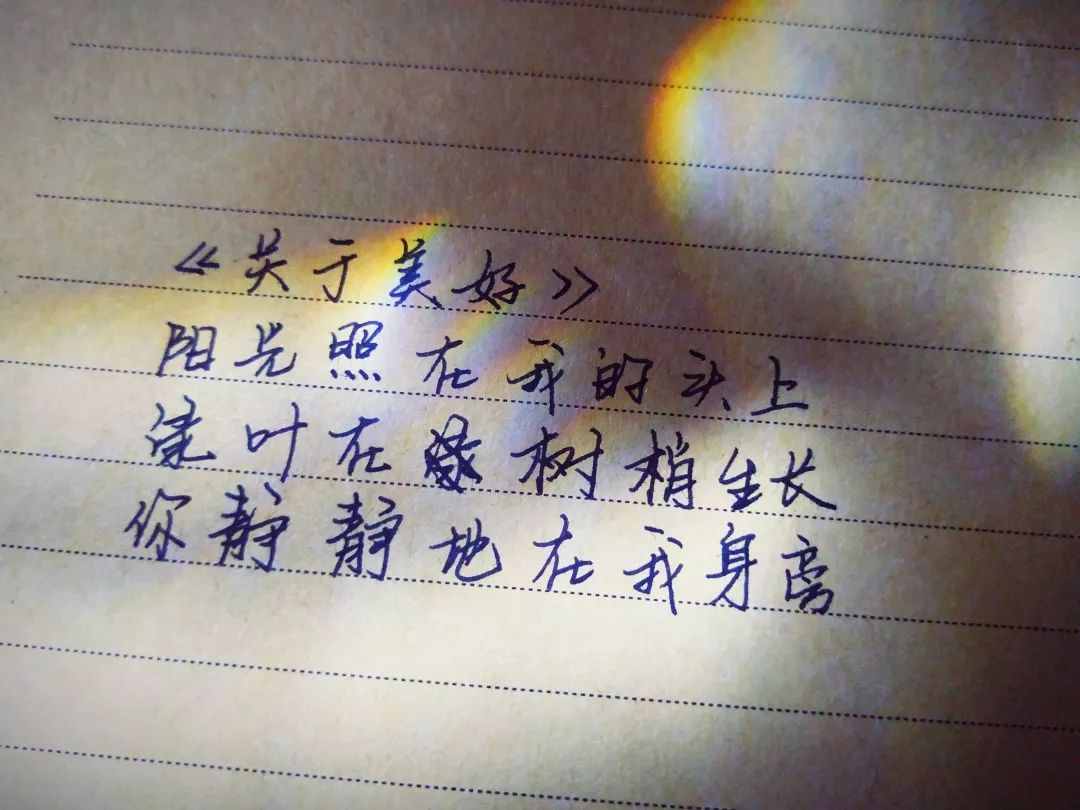 《关于美好》
阳光照在我的头上
绿叶在树梢生长
你静静地在我身旁